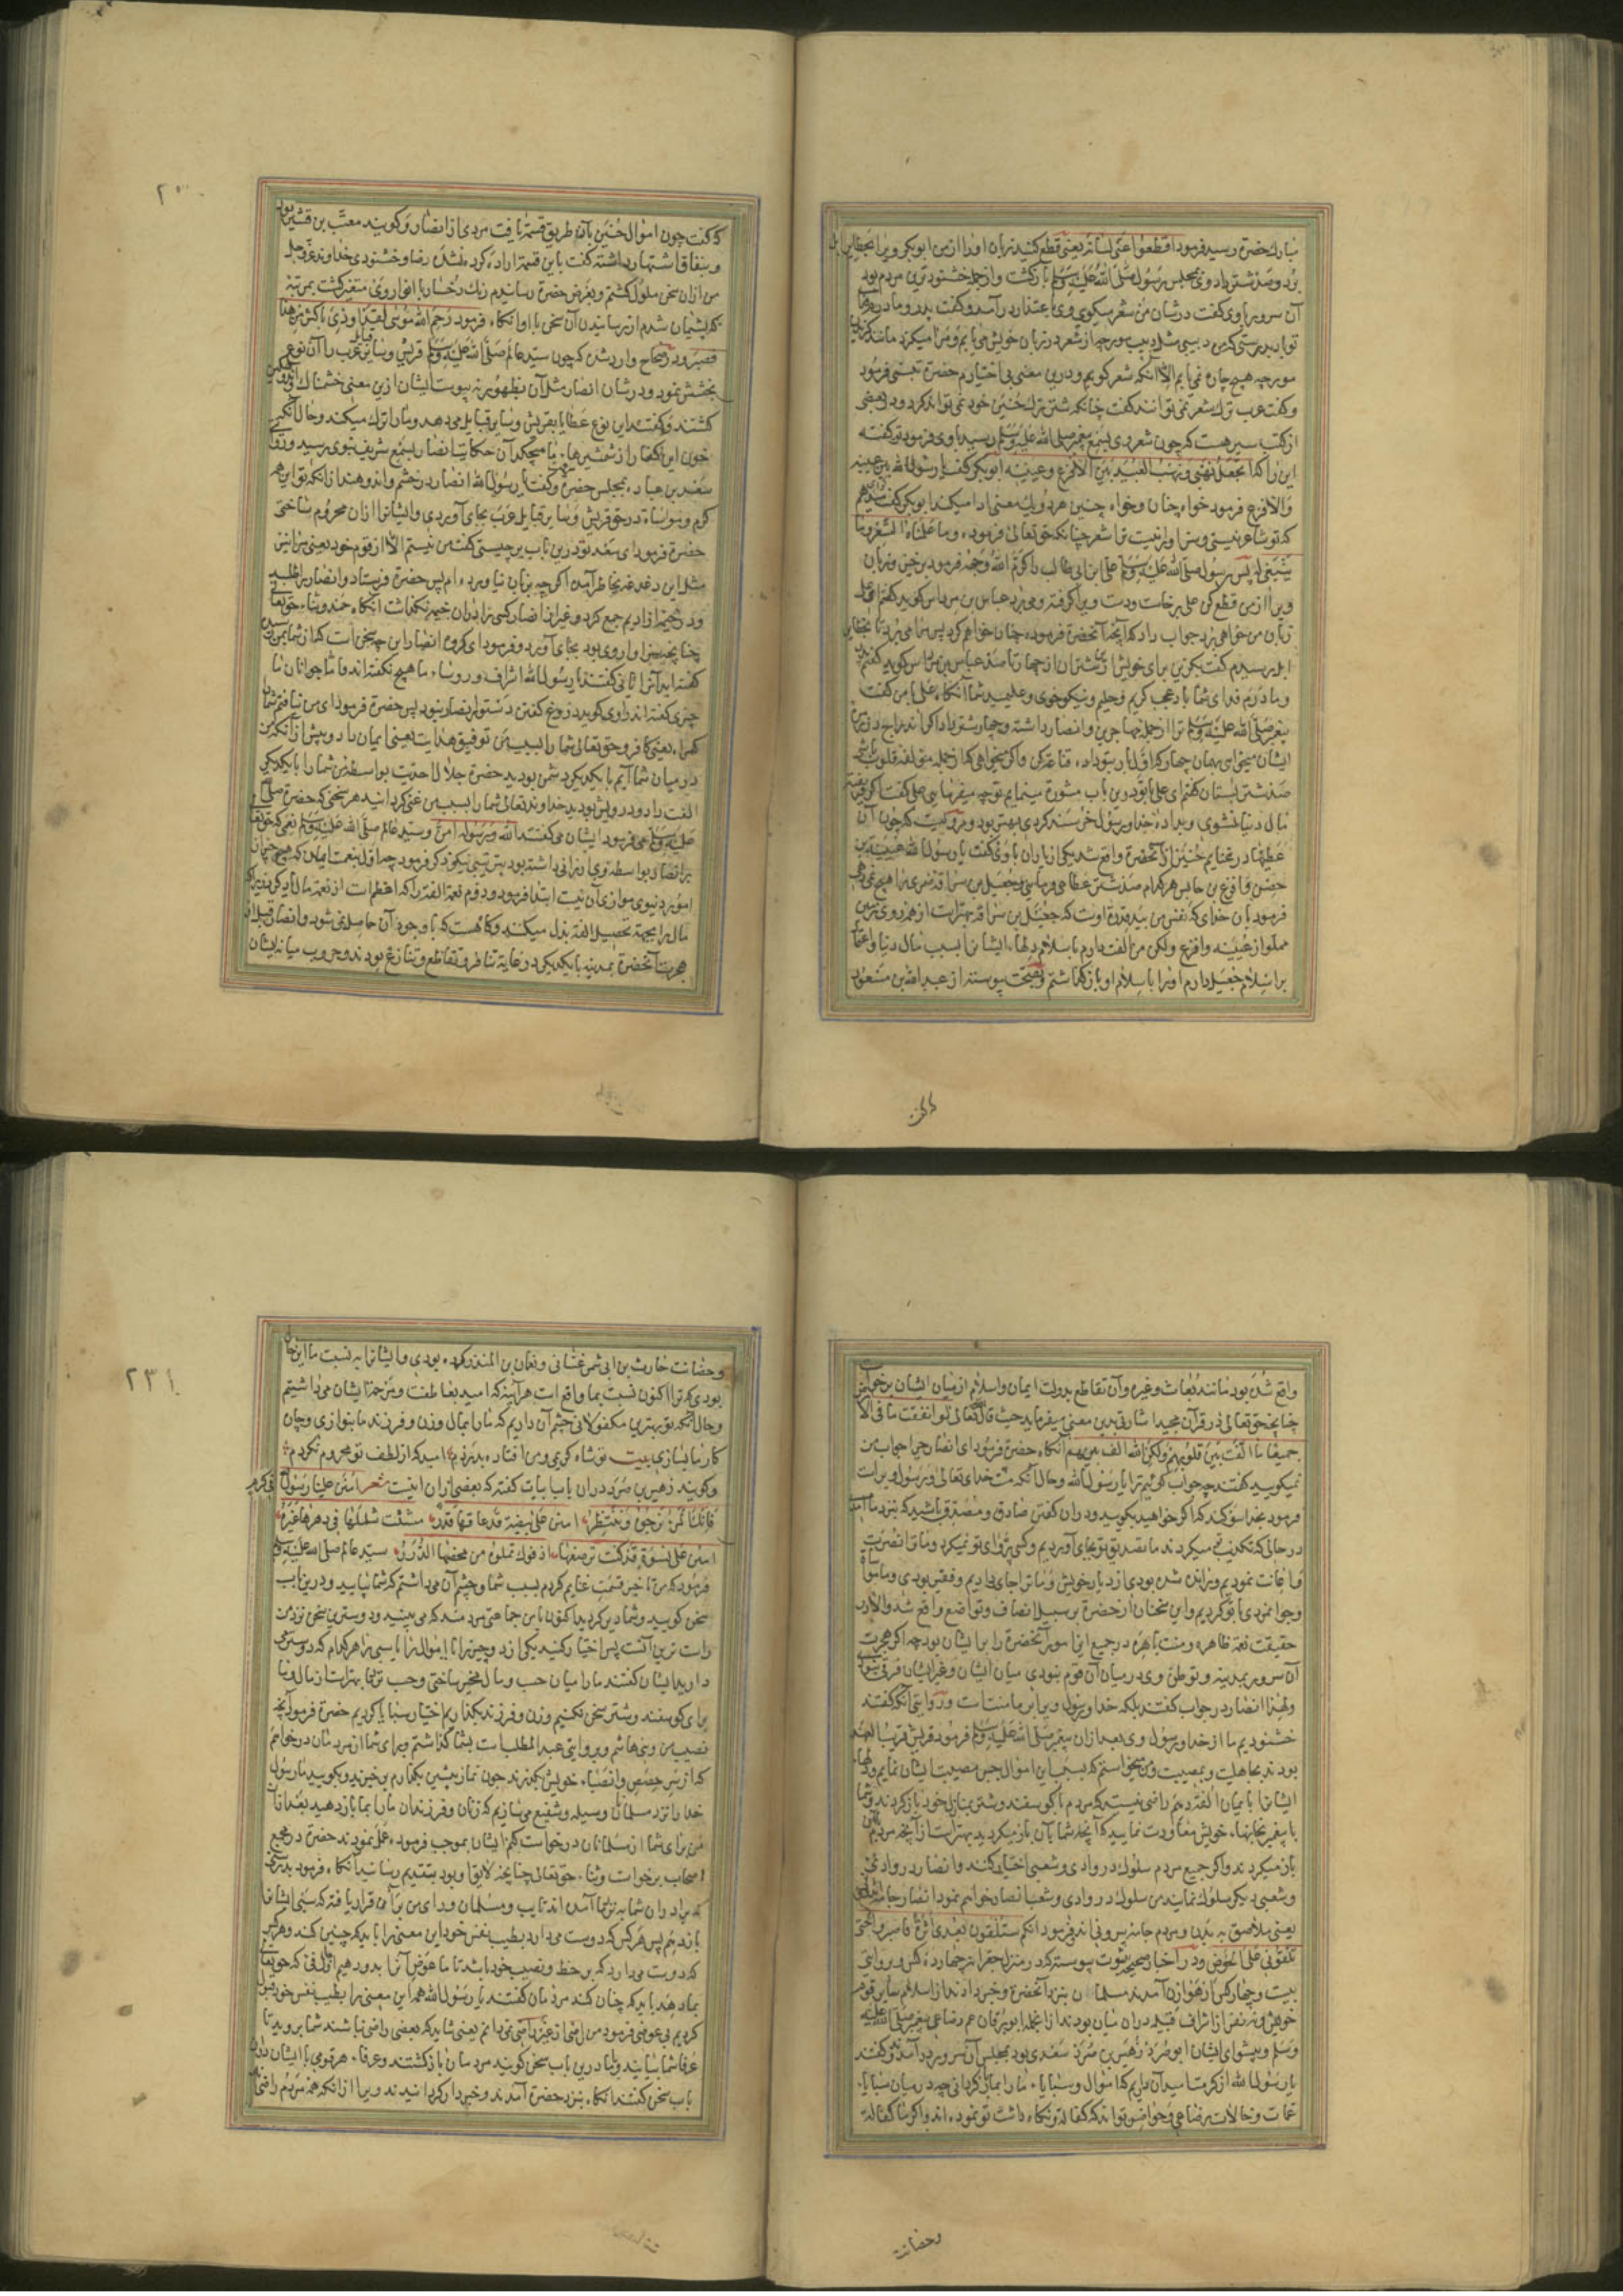 مبارك حضرة رسید فرمود اقطعوا عنی لسانه یعنی قطع کنید زبان او را از من ابوبکر ویرا
بود وصد شتر داد وی بمجلس رسول صلی الله علیه وسلم بازکشت واز جمله خشنودترین مردم بود
آن سرور باوی کفت در شان من شعر میکویی وی باعتذار درآمد وکفت پدر ومادرم فدای
تو باد بدرستی که من دبیبی مثل دبیب مورچه از شعر در زبان خویش می یابم ومرا میکزد مانند کزیدن
مورچه هیچ چاره نمی یابم الا آنکه شعر کویم ودرین معنی بی اختیارم حضرة تبسم فرمود
وکفت عرب ترك شعر نمی توانند کفت چنانکه شتر ترك حنین خود نمی تواند کرد ودر بعضی
از کتب سیر هست که چون شعر وی بسمع پیغمبر صلی الله علیه وسلم رسید باوی فرمود تو کفته
این را که اتجعل نهبی ونهب العبید بین الاقرع وعیینه ابوبکر کفت یا رسول الله بین عیینه
والاقرع فرمود خواه چنان وخواه چنین هر دو یك معنی ادا میکند ابوبکر کفت
که تو شاعر نیستی وسزاوار نیست ترا شعر چنانکه حق تعالی فرموده وما علمناه الشعر وما
ینبغی له پس رسول صلی الله علیه وسلم علی ابن ابی طالب را کرم الله وجهه فرمود برخیز وزبان
ویرا از من قطع کن علی برخاست ودست ویرا کرفته ومی برد عباس بن مرداس کوید کفتم ای علی
زبان من خواهی برید جواب داد که آنچه آنحضرة فرموده چنان خواهم کرد پس مرا می برد تا
ابل رسیدیم کفت بکزین برای خویش از شتران از چهار تا صد عباس بن مرداس کوید کفتم پدر
ومادرم فدای شما باد عجب کریم وحلیم ونیکو خوی وعلیمید شما آنکاه علی با من کفت
پیغمبر صلی الله علیه وسلم ترا از جمله مهاجرین وانصار داشته وچهار شتر داد
ایشان میخواهی بهمان چهار که اولا بتو داده قناعت کن واکر میخواهی که از جمله مؤلفه قلوب باشی
صد شتر بستان کفتم ای علی با تو درین باب مشورة مینمایم تو چه میفرمایی علی کفت اکر فریفته
مال دنیا نشوی وبداده خدا ورسول خرسند کردی بهتر بود ومرویست که چون آن
عطیها در غنایم حنین از آنحضرة واقع شد یکی از یاران باوی کفت یا رسول الله عیینه بن
حصن واقرع بن حابس هر کدام صد شتر عطا می فرمایی وجعیل بن سراقه ضمری را هیچ نمی دهی
فرمود بآن خدای که نفس من بید قدرة اوست که جعیل بن سراقه بهترست از همه روی زمین
مملو از عیینه واقرع ولکن من الفت دارم باسلام دلهاء ایشان را بسبب مال دنیا واعتماد
بر اسلام جعیل دارم او را باسلام او باز کذاشتم وبصحت پیوسته از عبدالله بن مسعود
که کفت
که کفت چون اموال حنین بآن طریق قسمة یافت مردی از انصار وکویند معتب بن قشیر بود
وبنفاق اشتهار داشته کفت باین قسمة اراده کرده نشد رضا وخشنودی خداوند عز وجل
من از آن سخن ملول کشتم وبعرض حضرة رسانیدم رنك رخسار با انوار وی متغیر کشت بمرتبه
که پشیمان شدم از رسانیدن آن سخن باو آنکاه فرمود رحم الله موسی لقد اوذی باکثر من هذا
فصبر ودر صحاح وارد شده که چون سید عالم صلی الله علیه وسلم قریش وسایر قبایل عرب را آن نوع
بخشش نمود ودر شان انصار مثل آن بظهور نه پیوست ایشان ازین معنی خشمناك
کشتند وکفتند این نوع عطایا بقریش وسایر قبایل می دهد وما را ترك میکند وحال آنکه
خون این کفار از شمشیرهاء ما میچکد آن حکایت انصار بسمع شریف نبوی رسید
سعد بن عباده بمجلس حضرة وکفت یا رسول الله انصار در خشم واندوهند از آنکه تو این همه
کرم ومواساة در حق قریش وسایر قبایل عرب بجای آوردی وایشان را از آن محروم ساختی
حضرة فرمود ای سعد تو درین باب بر چیستی کفت من نیستم الا از قوم خود یعنی مرا نیز
مثل این دغدغه بخاطر آمد اکرچه بزبان نیاورده ام پس حضرة فرستاد وانصار را طلبید
ودر خیمه از ادیم جمع کرد وغیر از انصار کسی را در آن خیمه نکذاشت آنکاه حمد وثناء حق تعالی
چنانچه سزاوار وی بود بجای آورد وفرمود ای کروه انصار این چه سخن است که از شما بمن رسید
کفته اید آنرا یا نی کفتند یا رسول الله اشراف ورؤساء ما هیچ نکفته اند فاما جوانان ما
چیزی کفته اند راوی کوید دروغ کفتن دستور انصار نبود پس حضرة فرمود ای من نیافتم شما را
کمراه یعنی کافر وحق تعالی شما را بسبب من توفیق هدایت یعنی ایمان داد وپیش از آنکه من
در میان شما آیم با یکدیکر دشمن بودید حضرة جلال احدیت بواسطه من شما را با یکدیکر
الفت داد ودرویش بودید خداوند تعالی شما را بسبب من غنی کردانید هر سخنی که حضرة صلی الله
علیه وسلم می فرمود ایشان می کفتند الله ورسوله امن وسید عالم صلی الله علیه وسلم نعمی که حق تعالی
بر انصار بواسطه وی ارزانی داشته بود بترتیبی نیکو ذکر فرمود چه اول نعمت ایمان که هیچ چیز از
امور دنیوی موازی آن نیست ابتدا فرمود ودوم نعمة الفة را که اعظم است از نعمة مال یاد کرد زیرا که
مال را بجهة تحصیل الفة بذل میکنند وکاه هست که با وجود آن حاصل نمی شود وانصار قبل از
هجرت آنحضرة بمدینه با یکدیکر در غایة تنافر وتقاطع وتنازع بودند وحروب میانه ایشان
واقع شده بود مانند بعاث وغیره وآن تقاطع بدولت ایمان واسلام از میان ایشان برخواست
چنانچه حق تعالی در قرآن مجید اشارة بدین معنی میفرماید حیث قال تعالی لو انفقت ما فی الارض
جمیعا ما الفت بین قلوبهم ولکن الله الف بینهم آنکاه حضرة فرمود ای انصار چرا جواب من
نمیکویید کفتند چه جواب کوییم ترا یا رسول الله وحال آنکه منت خدای تعالی ورسول ویراست
فرمود بخدا سوکند که اکر خواهید بکویید ودر آن کفتن صادق ومصدق باشید که نزد ما آمدی
در حالی که تکذیب تو میکردند ما تصدیق تو بجای آوردیم وکسی پروای تو نمیکرد وما ترا نصرت
واعانت نمودیم ورانده شده بودی از دیار خویش وما ترا جای دادیم وفقیر بودی وما مواسا
وجوانمردی با تو کردیم واین سخنان از حضرة بر سبیل انصاف وتواضع واقع شد والا در
حقیقت نعمة ظاهره ومنت باهره در جمیع این امور آنحضرة را بر ایشان بود چه اکر هجرت
آن سرور بمدینه وتوطن وی در میان آن قوم نبودی میان ایشان وغیر ایشان فرقی نبود
ولهذا انصار در جواب کفتند بلکه خدا ورسول ویرا بر ما منت است ودر روایتی آنکه کفتند
خشنودیم ما از خدا ورسول وی وبعد از آن پیغمبر صلی الله علیه وسلم فرمود قریش قریب العهد
بودند بجاهلیت وبمصیبت ومن میخواستم که بسبب این اموال جبر مصیبت ایشان نمایم ودلهاء
ایشان را بایمان الفة دهم راضی نیستید که مردم با کوسفند وشتر بمنازل خود باز کردند وشما
با پیغمبر بجایهاء خویش معاودت نمایید که آنچه شما بآن باز میکردید بهترست از آنچه مردم بآن
باز میکردند واکر جمیع مردم سلوك در وادی وشعبی اختیار کنند وانصار در وادی
وشعبی دیکر سلوك نمایند من سلوك در وادی وشعب انصار خواهم نمود انصار جامه
یعنی ملاصق به بدن ومردم جامه بیرونی اند فرمود انکم ستلقون بعدی اثرة فاصبروا حتی
تلقونی علی الحوض ودر اخبار صحیحه بثبوت پیوسته که در منزل جعرانه چهارده کس وبروایتی
بیست وچهار کس از هوازن آمدند مسلمان بنزد آنحضرة وخبر دادند از اسلام سایر قوم
خویش ونه نفر از اشراف قبیله در آن میان بودند از آنجمله ابوبرقان عم رضاعی پیغمبر صلی الله علیه
وسلم وپیشوای ایشان ابوصرد زهیر بن صرد سعدی بود بمجلس آن سرور درآمدند وکفتند
یا رسول الله از کرمت امید آن داریم که اموال وسبایاء ما را بما باز کردانی چه در میان سبایا
عمات وخالات رضاعی وحواضن تواند که کفالة ونکاه داشت تو نموده اند واکر ما کفالة
وحضانت
وحضانت حارث بن ابی شمر غسانی ونعمان بن المنذر کرده بودی وایشان را به نسبت ما این حال
بودی که ترا اکنون نسبت بما واقع است هر آینه که امید بعاطفت ومرحمة ایشان می داشتیم
وحال آنکه تو بهترین مکفولانی چشم آن داریم که ما را بمال وزن وفرزند ما بنوازی وچان
کار ما بسازی بیت تو شاه کریمی ومن افتاده بدرت امید که از لطف تو محروم نکردم
وکویند زهیر بن صرد در آن باب ابیات کفته که بعضی از آن اینست شعر امنن علینا رسول الله فی کرم
فانك المرء نرجوه وننتظر امنن علی بیضة قد عاقها قدر مشتت شملها فی دهرها غیر
امنن علی نسوة قد کنت ترضعها اذ فوك تملوه من محضها الدرر سید عالم صلی الله علیه وسلم
فرمود که من تاخیر قسمت غنایم کردم بسبب شما وچشم آن می داشتم که شما بیایید ودرین باب
سخن کویید وشما دیر کردید اکنون با من جماعتی مردمند که می بینید ودوستترین سخن نزد من
راست ترین آنست پس اختیار کنید یکی از دو چیز را یا اموال را یا سبی را هر کدام که دوستتر
دارید ایشان کفتند ما را میان حسب ومال مخیر ساختی وحسب نزد ما بهترست از مال وما
برای کوسفند وشتر سخن نکنیم وزن وفرزند نکذاریم اختیار سبایا کردیم حضرة فرمود آنچه
نصیب من وبنی هاشم وبروایتی عبدالمطلب است بشما کذاشتم وبرای شما از مردمان درخواهم
که از سر حصص وانصباء خویش بکذرند چون نماز پیشین بکذارم برخیزید وبکویید ما رسول
خدا را نزد مسلمانان وسیله وشفیع می سازیم که زنان وفرزندان ما را بما باز دهید بعد از آن
من برای شما از مسلمانان درخواست کنم ایشان بموجب فرموده عمل نمودند حضرة در مجمع
اصحاب برخواست وثناء حق تعالی چنانچه لایق او بود بتقدیم رسانید آنکاه فرمود بدرستی
که برادران شما به نزد شما آمده اند تایب ومسلمان ورای من بر آن قرار یافته که سبی ایشان را
باز دهم پس هر کس که دوست می دارد بطیب نفس خود این معنی را باید که چنین کند وهر کس
که دوست می دارد که بر حظ ونصیب خود باشد تا ما عوض آنرا بدو دهیم از اول فئ که حق تعالی
بما دهد باید که چنان کند مردمان کفتند یا رسول الله همه این معنی را بطیب نفس خود قبول
کردیم بی عوضی فرمود من راضی از غیر راضی نمی دانم یعنی شاید که بعضی راضی نباشند شما بروید تا
عرفاء شما بیایند وبا ما درین باب سخن کویند مردمان باز کشتند وعرفاء هر قومی با ایشان درین
باب سخن کفتند آنکاه بنزد حضرة آمدند وخبردار کردانیدند ویرا از آنکه همه مردم راضی
٢٣١